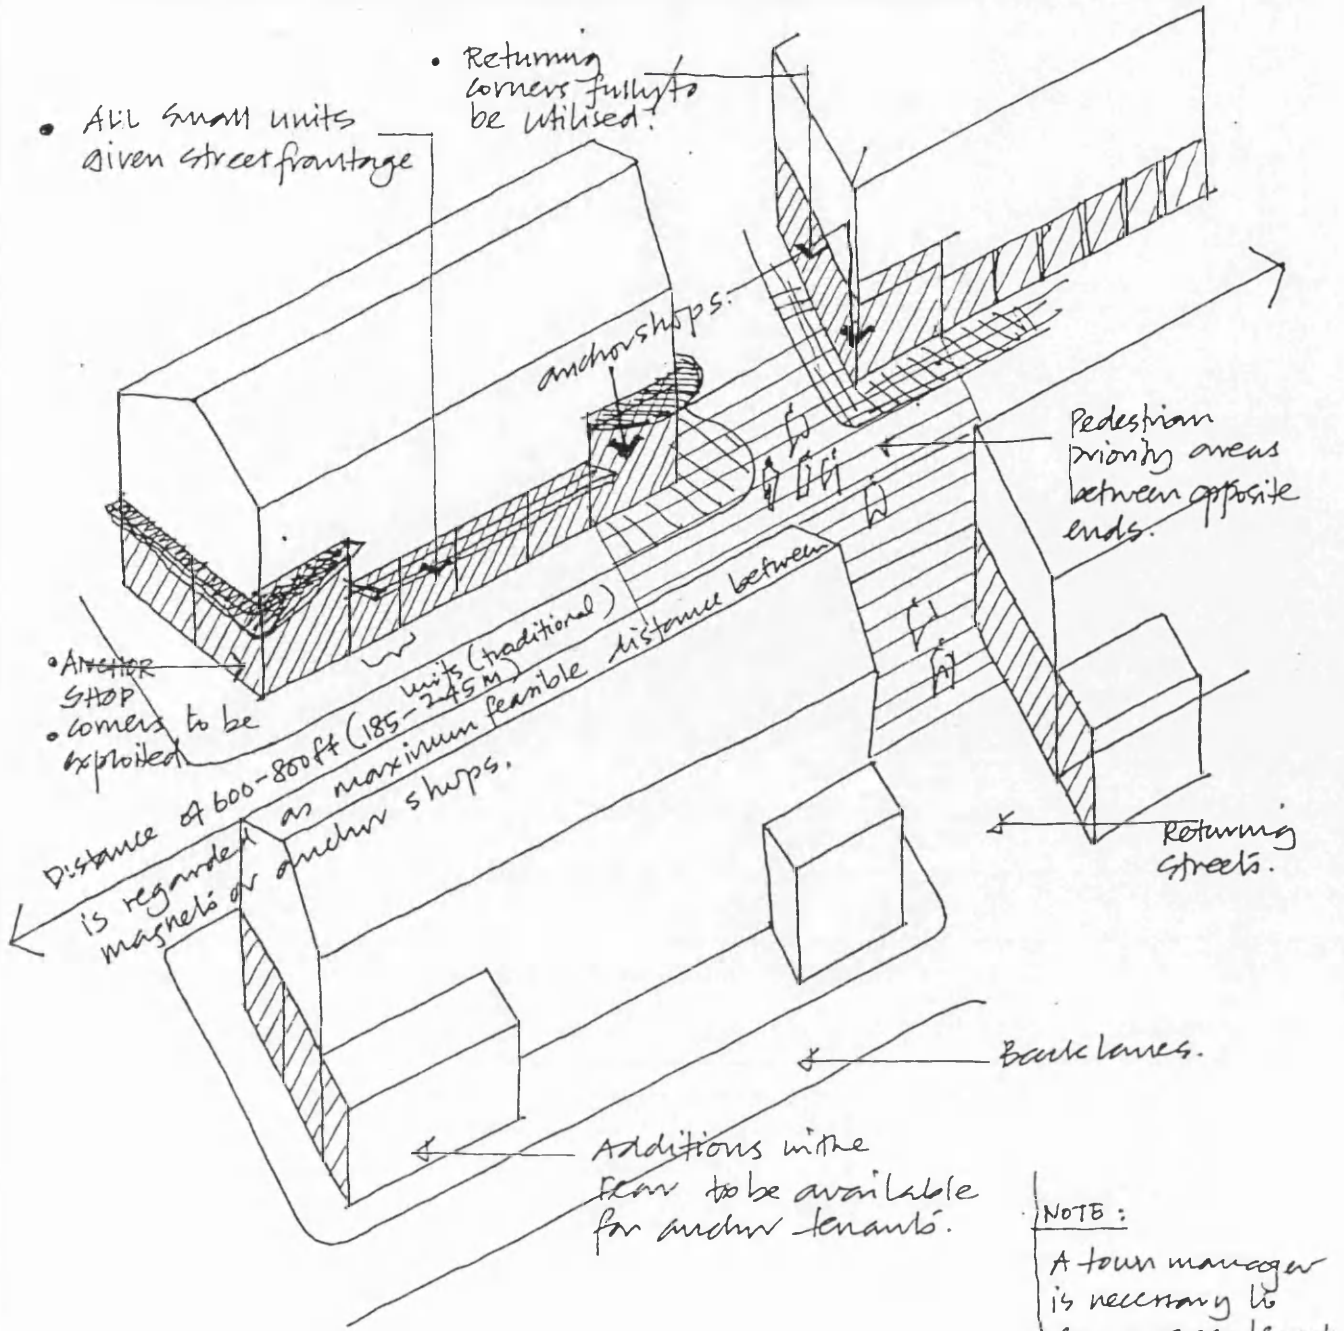 • Returning
corners fully to
be utilised.
• All small units
given street frontage
anchor shops.
Pedestrian
priority areas
between opposite
ends.
• ANCHOR
SHOP
• corners to be
exploited
units (traditional)
Distance of 600-800ft (185-245m)
is regarded as maximum feasible distance between
magnets or anchor shops.
Returning
streets.
Back lanes.
Additions in the
rear to be available
for anchor tenants.
NOTE:
A town manager
is necessary to